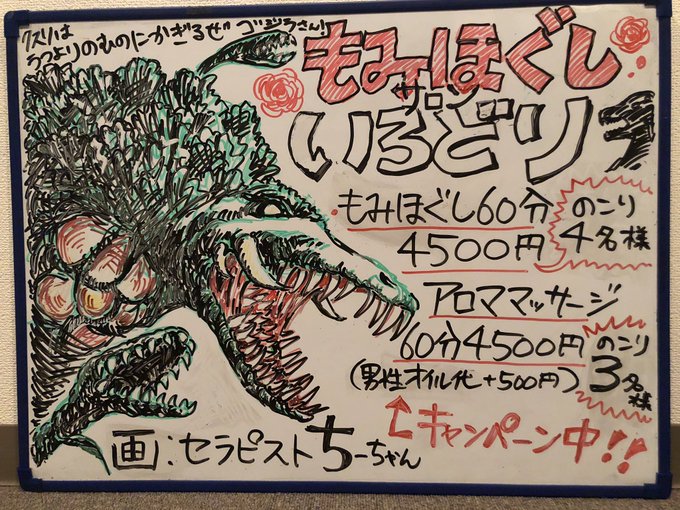 クスリは
うつよりのものにかぎるぜ ゴジラさん!
もみほぐし
サロン
いろどり
もみほぐし60分
4500円
のこり
4名様
アロママッサージ
60分4500円
(男性オイル代+500円)
のこり
3名様
↑キャンペーン中!!
画:セラピストちーちゃん